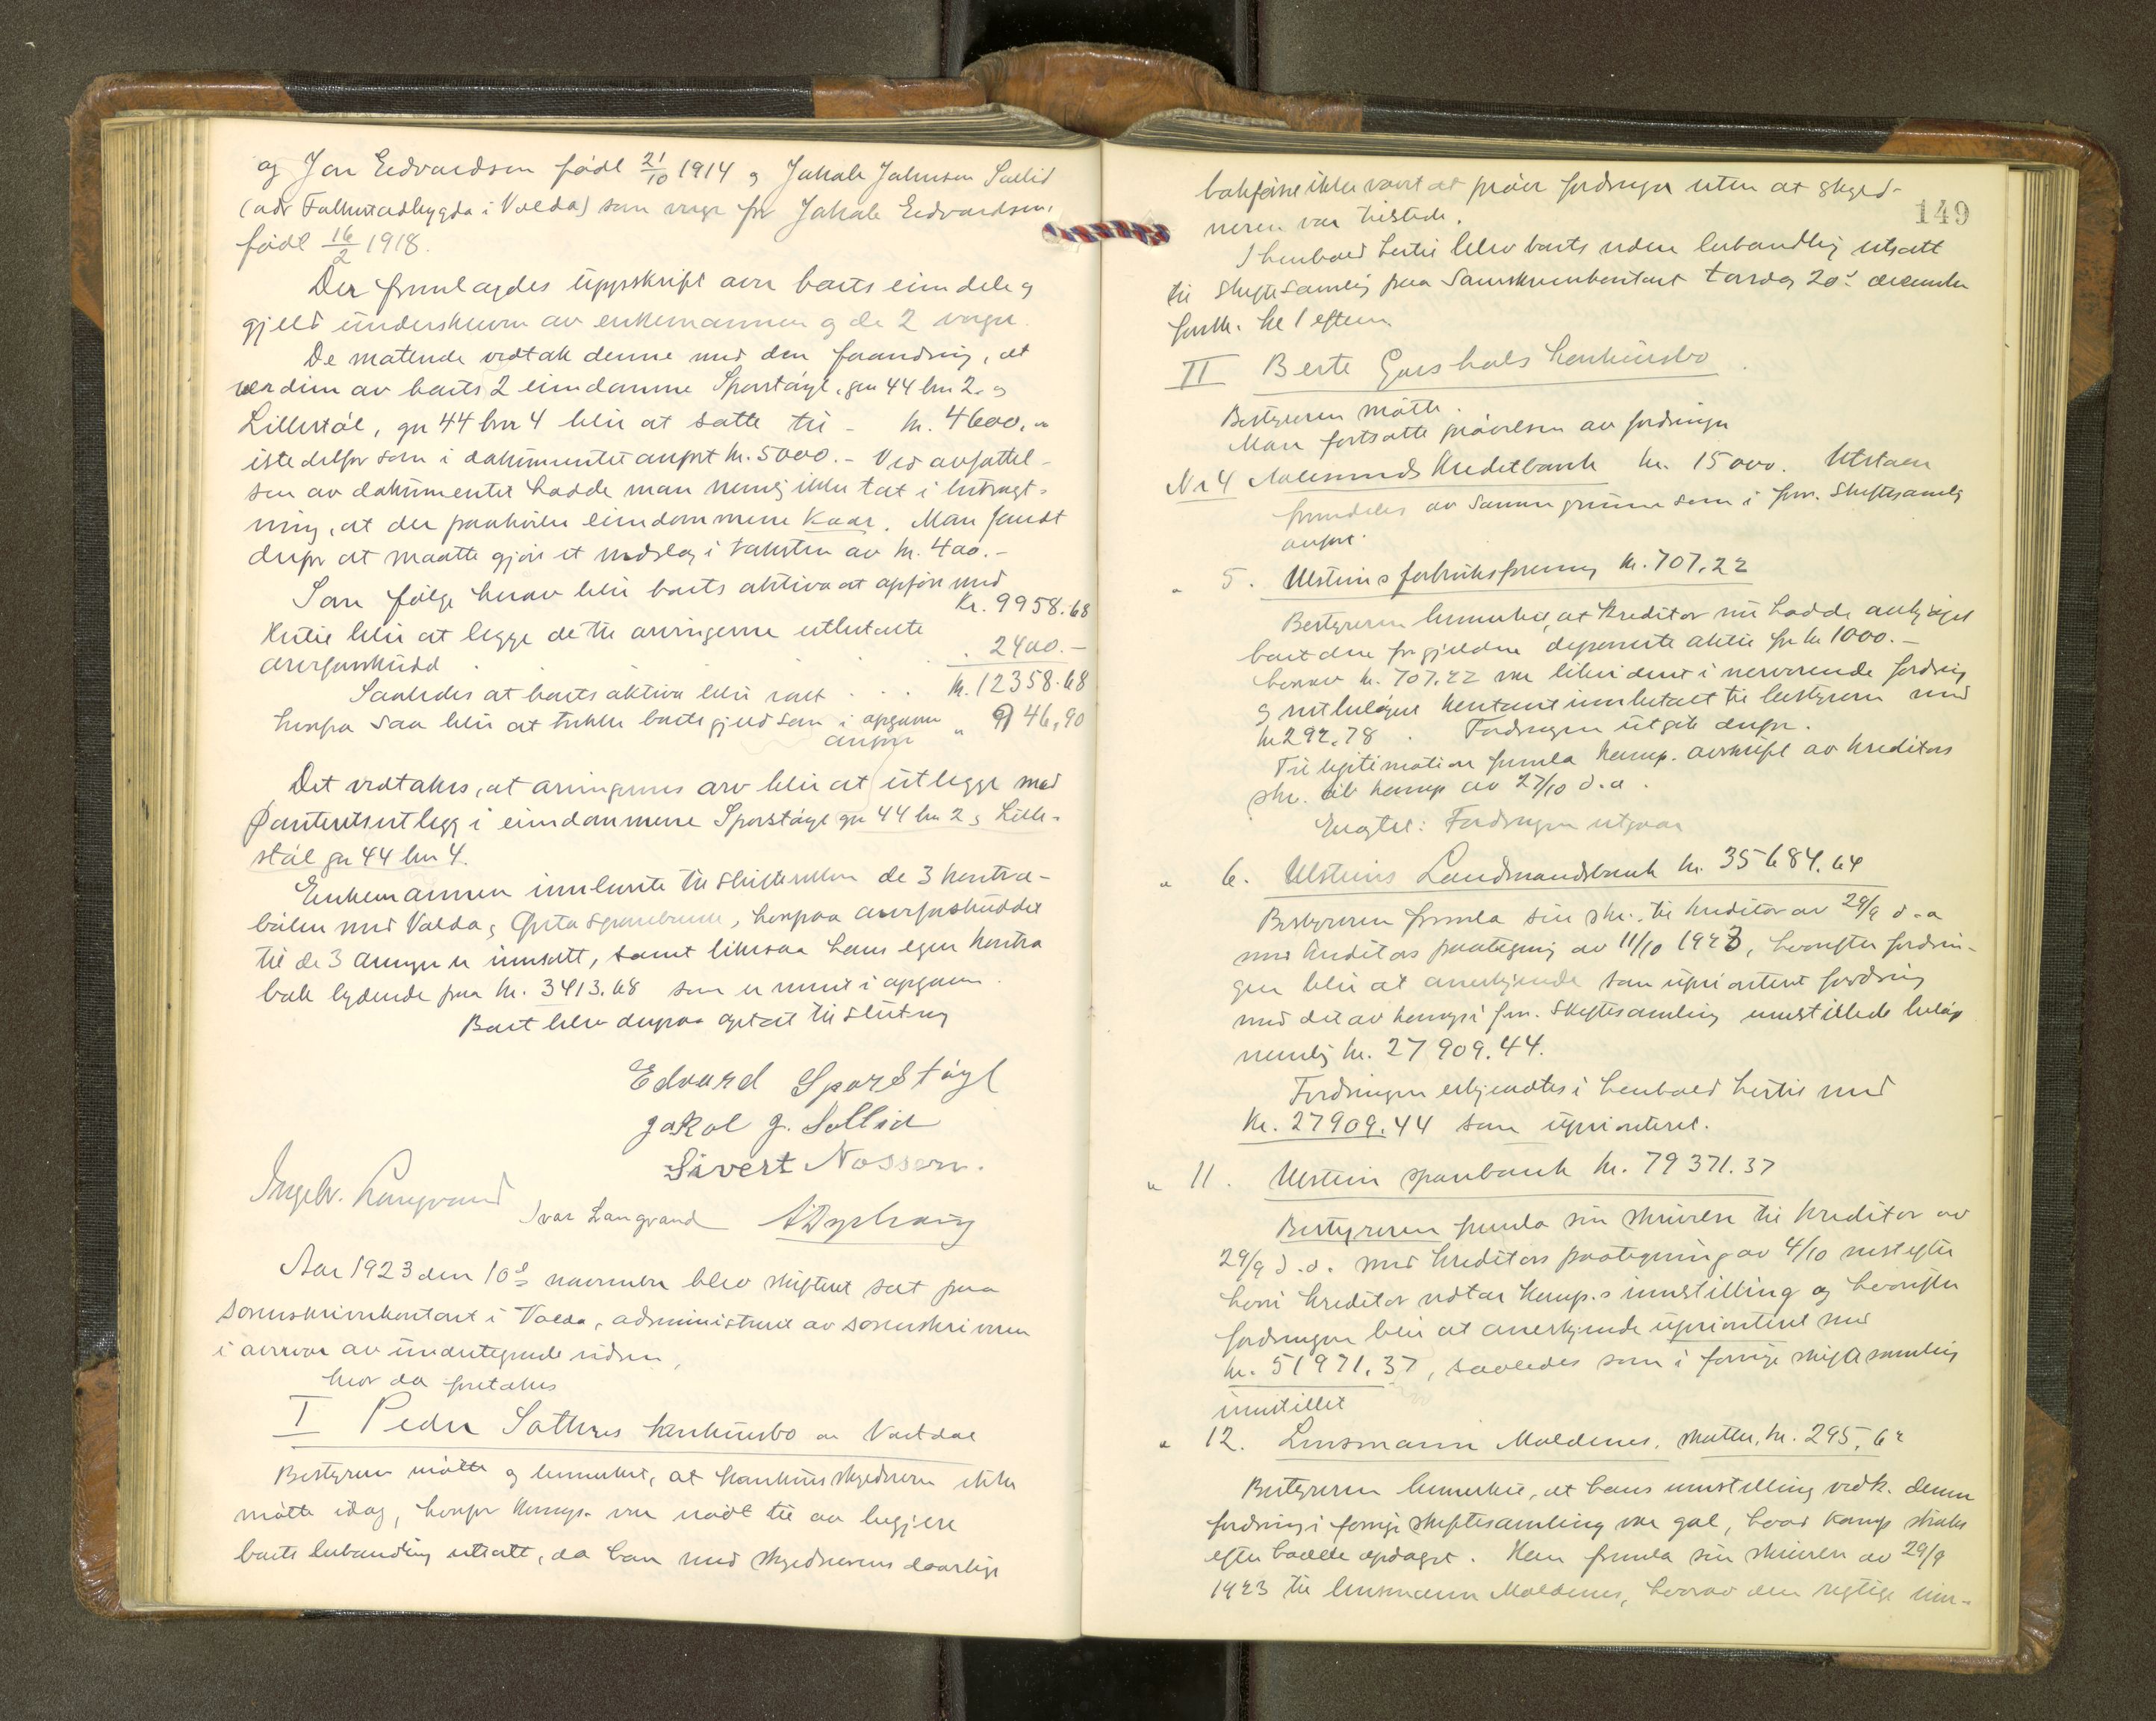 og Jon Edvardsen født 21/10 1914 og Jakob Johnsen Sollid
(adr Folkestadbygda i Volda) som verge for Jakob Edvardsen,
født 16/2 1918.
Der fremlagdes uppskrift over boets eiendele og
gjeld underskreven av enkemannen og de 2 verger.
De møtende vedtok denne med den forandring, at
verdien av boets 2 eiendomme Sporstøyl, gnr 44 bnr 2 og
Lillestøl, gnr 44 bnr 4 blir at sætte til - kr. 4600,-
istedetfor som i dokumentet anført kr. 5000.- Ved avfattel-
sen av dokumentet hadde man nemlig ikke tat i betragt-
ning, at der paahviler eiendommene kaar. Man fandt
derfor at maatte gjøre et nedslag i taksten av kr. 400.-
Som følge herav blir boets aktiva at opføre med
kr. 9958.68
Hertil blir at legge de til arvingerne utbetalte
arveforskudd . . . . 2400.-
Saaledes at boets aktiva blir ialt . . . kr. 12358.68
hvorfra saa blir at trekke boets gjeld som i opgaven " 9146,90
anført
Det vedtokes, at arvingernes arv blir at utlegge med
Panteretsutlegg i eiendommene Sporstøyl gnr 44 bnr 2 og Lille-
støl gnr 44 bnr 4.
Enkemannen innleverte til skifteretten de 3 kontra-
bøker med Volda og Ørsta sparebanke, hvorpaa arveforskuddet
til de 3 arvinger er innsatt, samt likesaa hans egen kontra
bok lydende paa kr. 3413.68 som er nevnt i opgaven.
Boet blev derpaa optat til slutning
Edvard Sporstøyl
Jakob J. Sollid
Sivert Nossen.
Ingebr. Langvand Ivar Langvand
Aar 1923 den 10de november blev skifteret sat paa
sorenskriverkontoret i Volda, administreret av sorenskriveren
i nærvær av undertegnede vidner,
hvor da foretokes
I Peder Sætres konkursbo av Vartdal
Bestyreren møtte og bemerket, at konkursskyldneren ikke
møtte idag, hvorfor komp. var nødt til aa begjere
boets behandling utsatt, da han med skyldnerens daarlige
149
bokførsel ikke vaaget at prøve fordringer uten at skyld-
neren var tilstede.
I henhold hertil blev boets videre behandling utsatt
til skiftesamling paa Sorenskriverkontoret torsdag 20de december
førstk. kl 1 efterm.
II Berte Garshols konkursbo.
Bestyreren møtte.
Man fortsatte prøvelsen av fordringer
Nr 4 Aalesunds Kreditbank kr. 15000. Utstaar
fremdeles av samme grunn som i forr. skiftesamling
anført.
" 5. Ulsteins forbruksforening kr. 707.22
Bestyreren bemerket, at kreditor nu hadde avkjøpt
boet den for gjelden deponerte aktie for kr 1000.-
hvorav kr. 707.22 var likvidert i nærværende fordring
og restbeløpet kontant innbetalt til bestyreren med
kr 292.78. Fordringen utgik derfor.
Til legitimation fremla komp. avskrift av kreditors
skr. til komp av 27/10 d.a.
Eragtet: Fordringen utgaar
" 6. Ulsteins Landmandsbank kr. 35684.64
Bestyreren fremla sin skr. til kreditor av 29/9 d.a
med kreditors paategning av 11/10 1923, hvorefter fordrin-
gen blir at anerkjende som uprioritert fordring
med det av komp i forr. skiftesamling innstillede beløp
nemlig kr. 27909.44.
Fordringen erkjendtes i henhold hertil med
kr. 27909.44 som uprioriteret.
" 11. Ulstein sparebank kr. 79371.37
Bestyreren fremla sin skrivelse til kreditor av
29/9 d.a. med kreditors paategning av 4/10 næstefter
hvori kreditor vedtar komp.s innstilling og hvorefter
fordringen blir at anerkjende uprioritert med
kr. 51971.37, saaledes som i forrige skiftesamling
innstillet
" 12. Lensmann Moldenes, skatter, kr. 295,62
Bestyreren bemerket, at hans innstilling vedk. denne
fordring i forrige skiftesamling var gal, hvad komp straks
efter hadde opdaget. Han fremla sin skrivelse av 29/9
1923 til lensmann Moldenes, hvorav den rigtige inn-